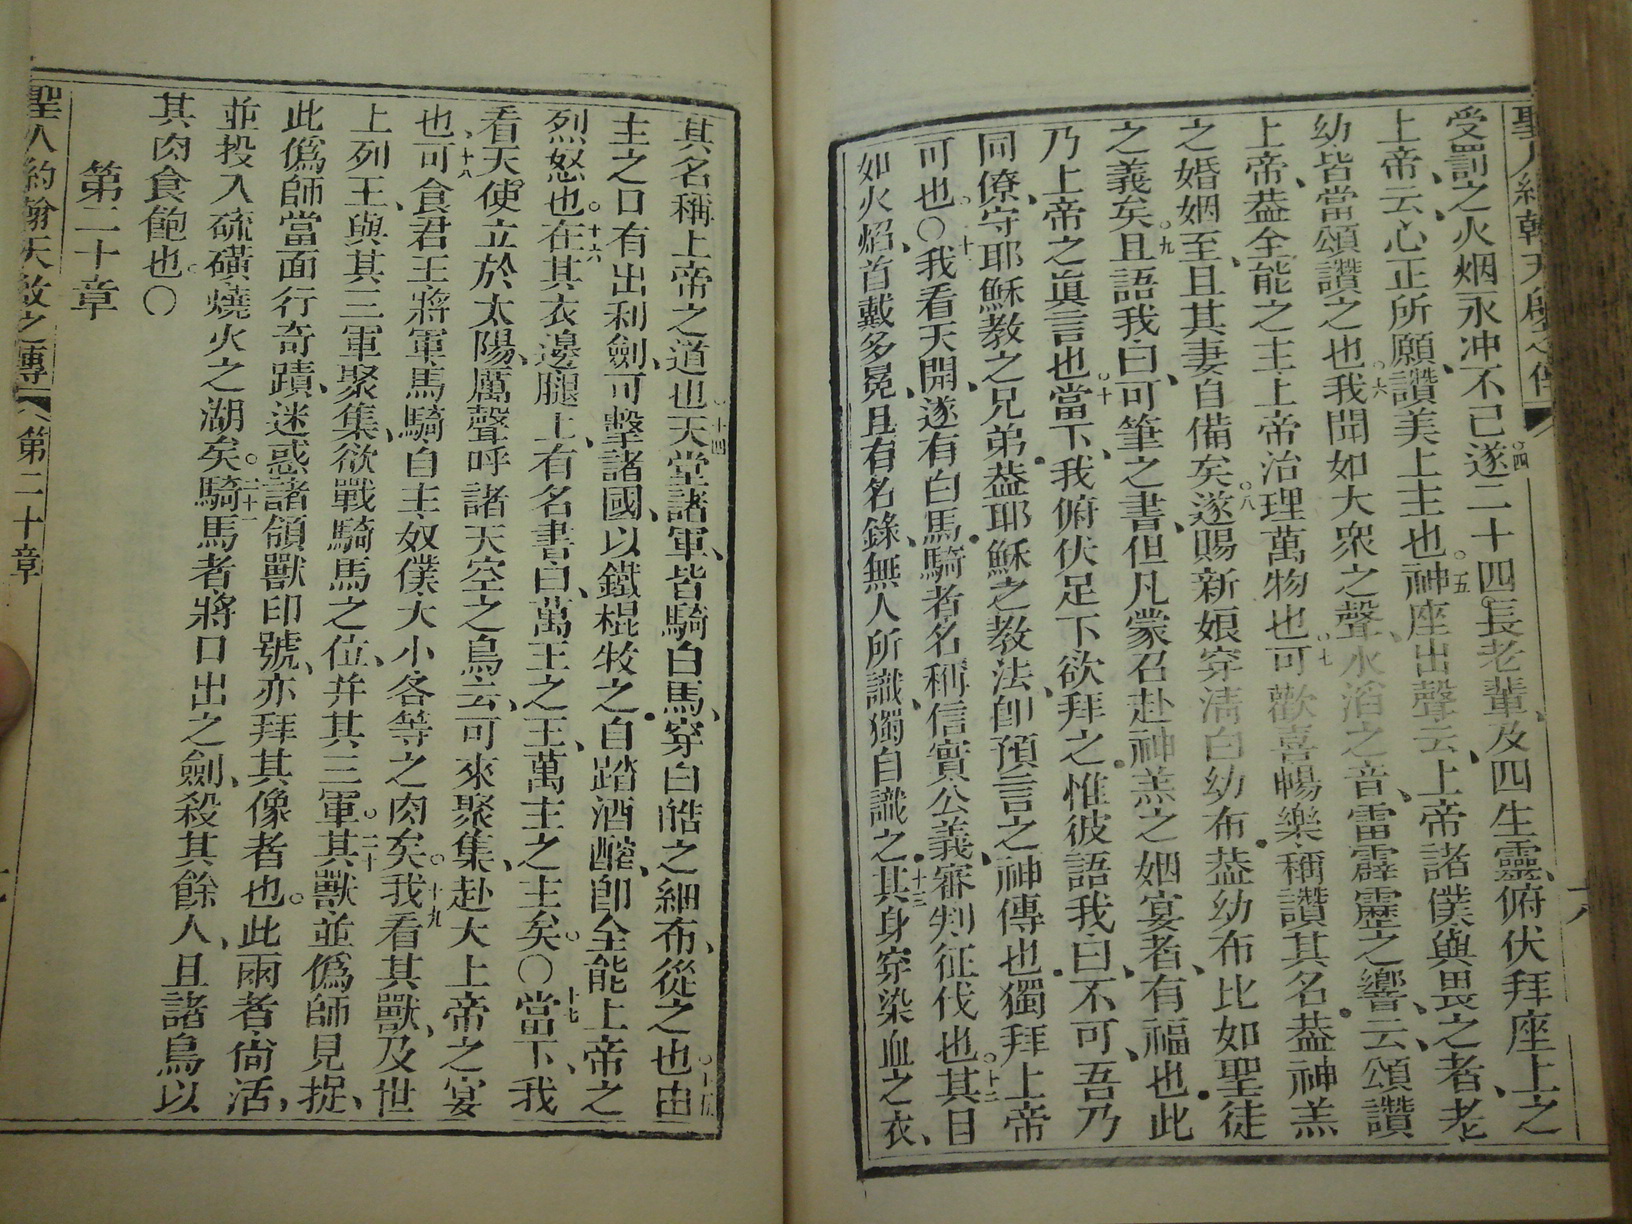 聖人約翰天啟之傳
受罰之火烟永冲不已遂二十四長老輩及四生靈俯伏拜座上之
上帝云心正所願讚美上主也神座出聲云上帝諸僕與畏之者老
幼皆當頌讚之也我聞如大衆之聲水滔之音雷霹靂之響云頌讚
上帝葢全能之主上帝治理萬物也可歡喜暢樂稱讚其名葢神羔
之婚姻至且其妻自備矣遂賜新娘穿清白幼布葢幼布比如聖徒
之義矣且語我曰可筆之書但凡蒙召赴神羔之姻宴者有福也此
乃上帝之眞言也當下我俯伏足下欲拜之惟彼語我曰不可吾乃
同僚守耶穌教之兄弟葢耶穌之教法卽預言之神傳也獨拜上帝
可也〇我看天開遂有白馬騎者名稱信實公義審判征伐也其目
如火焰首戴多冕且有名錄無人所識獨自識之其身穿染血之衣
其名稱上帝之道也天堂諸軍皆騎白馬穿白皓之細布從之也由
主之口有出利劍可擊諸國以鐵棍牧之自踏酒醡卽全能上帝之
烈怒也在其衣邊腿上有名書曰萬王之王萬主之主矣〇當下我
看天使立於太陽厲聲呼諸天空之鳥云可來聚集赴大上帝之宴
也可食君王將軍馬騎自主奴僕大小各等之肉矣我看其獸及世
上列王與其三軍聚集欲戰騎馬之位并其三軍其獸並僞師見捉
此僞師當面行奇蹟迷惑諸領獸印號亦拜其像者也此兩者尙活
並投入硫磺燒火之湖矣騎馬者將口出之劍殺其餘人且諸鳥以
其肉食飽也〇
第二十章
聖人約翰天啟之傳 第二十章